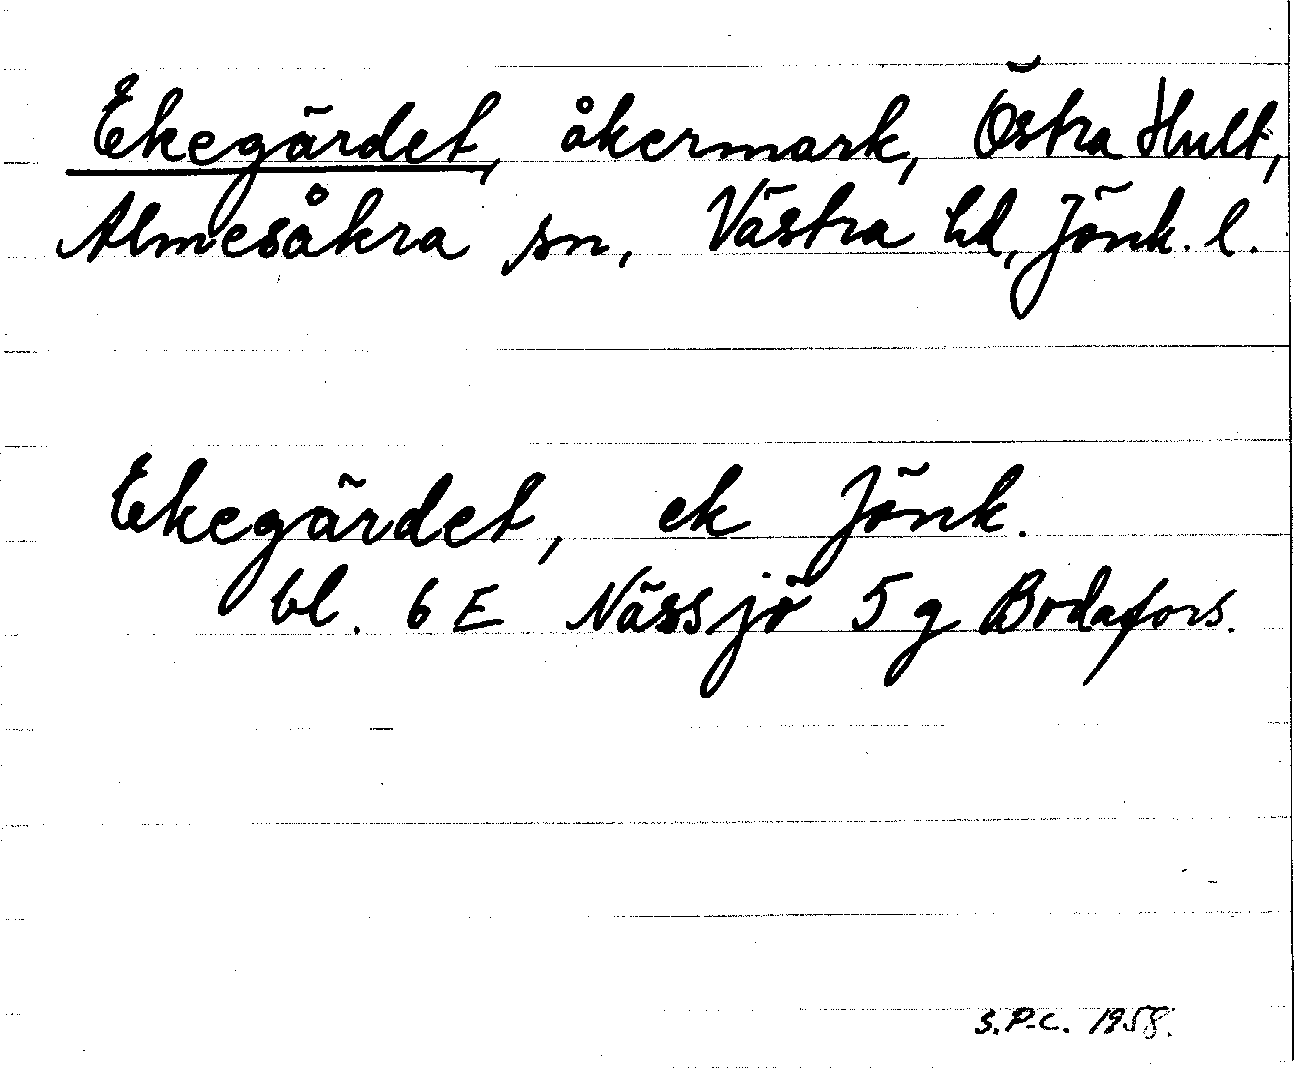 Ekegärdet, åkermark, Östra Hult,
Almesåkra sn, Västra hd, Jönk. l.
Ekegärdet, ek Jönk.
bl. 6 E Nässjö 5 g Bodafors.
S.P-C. 1958.